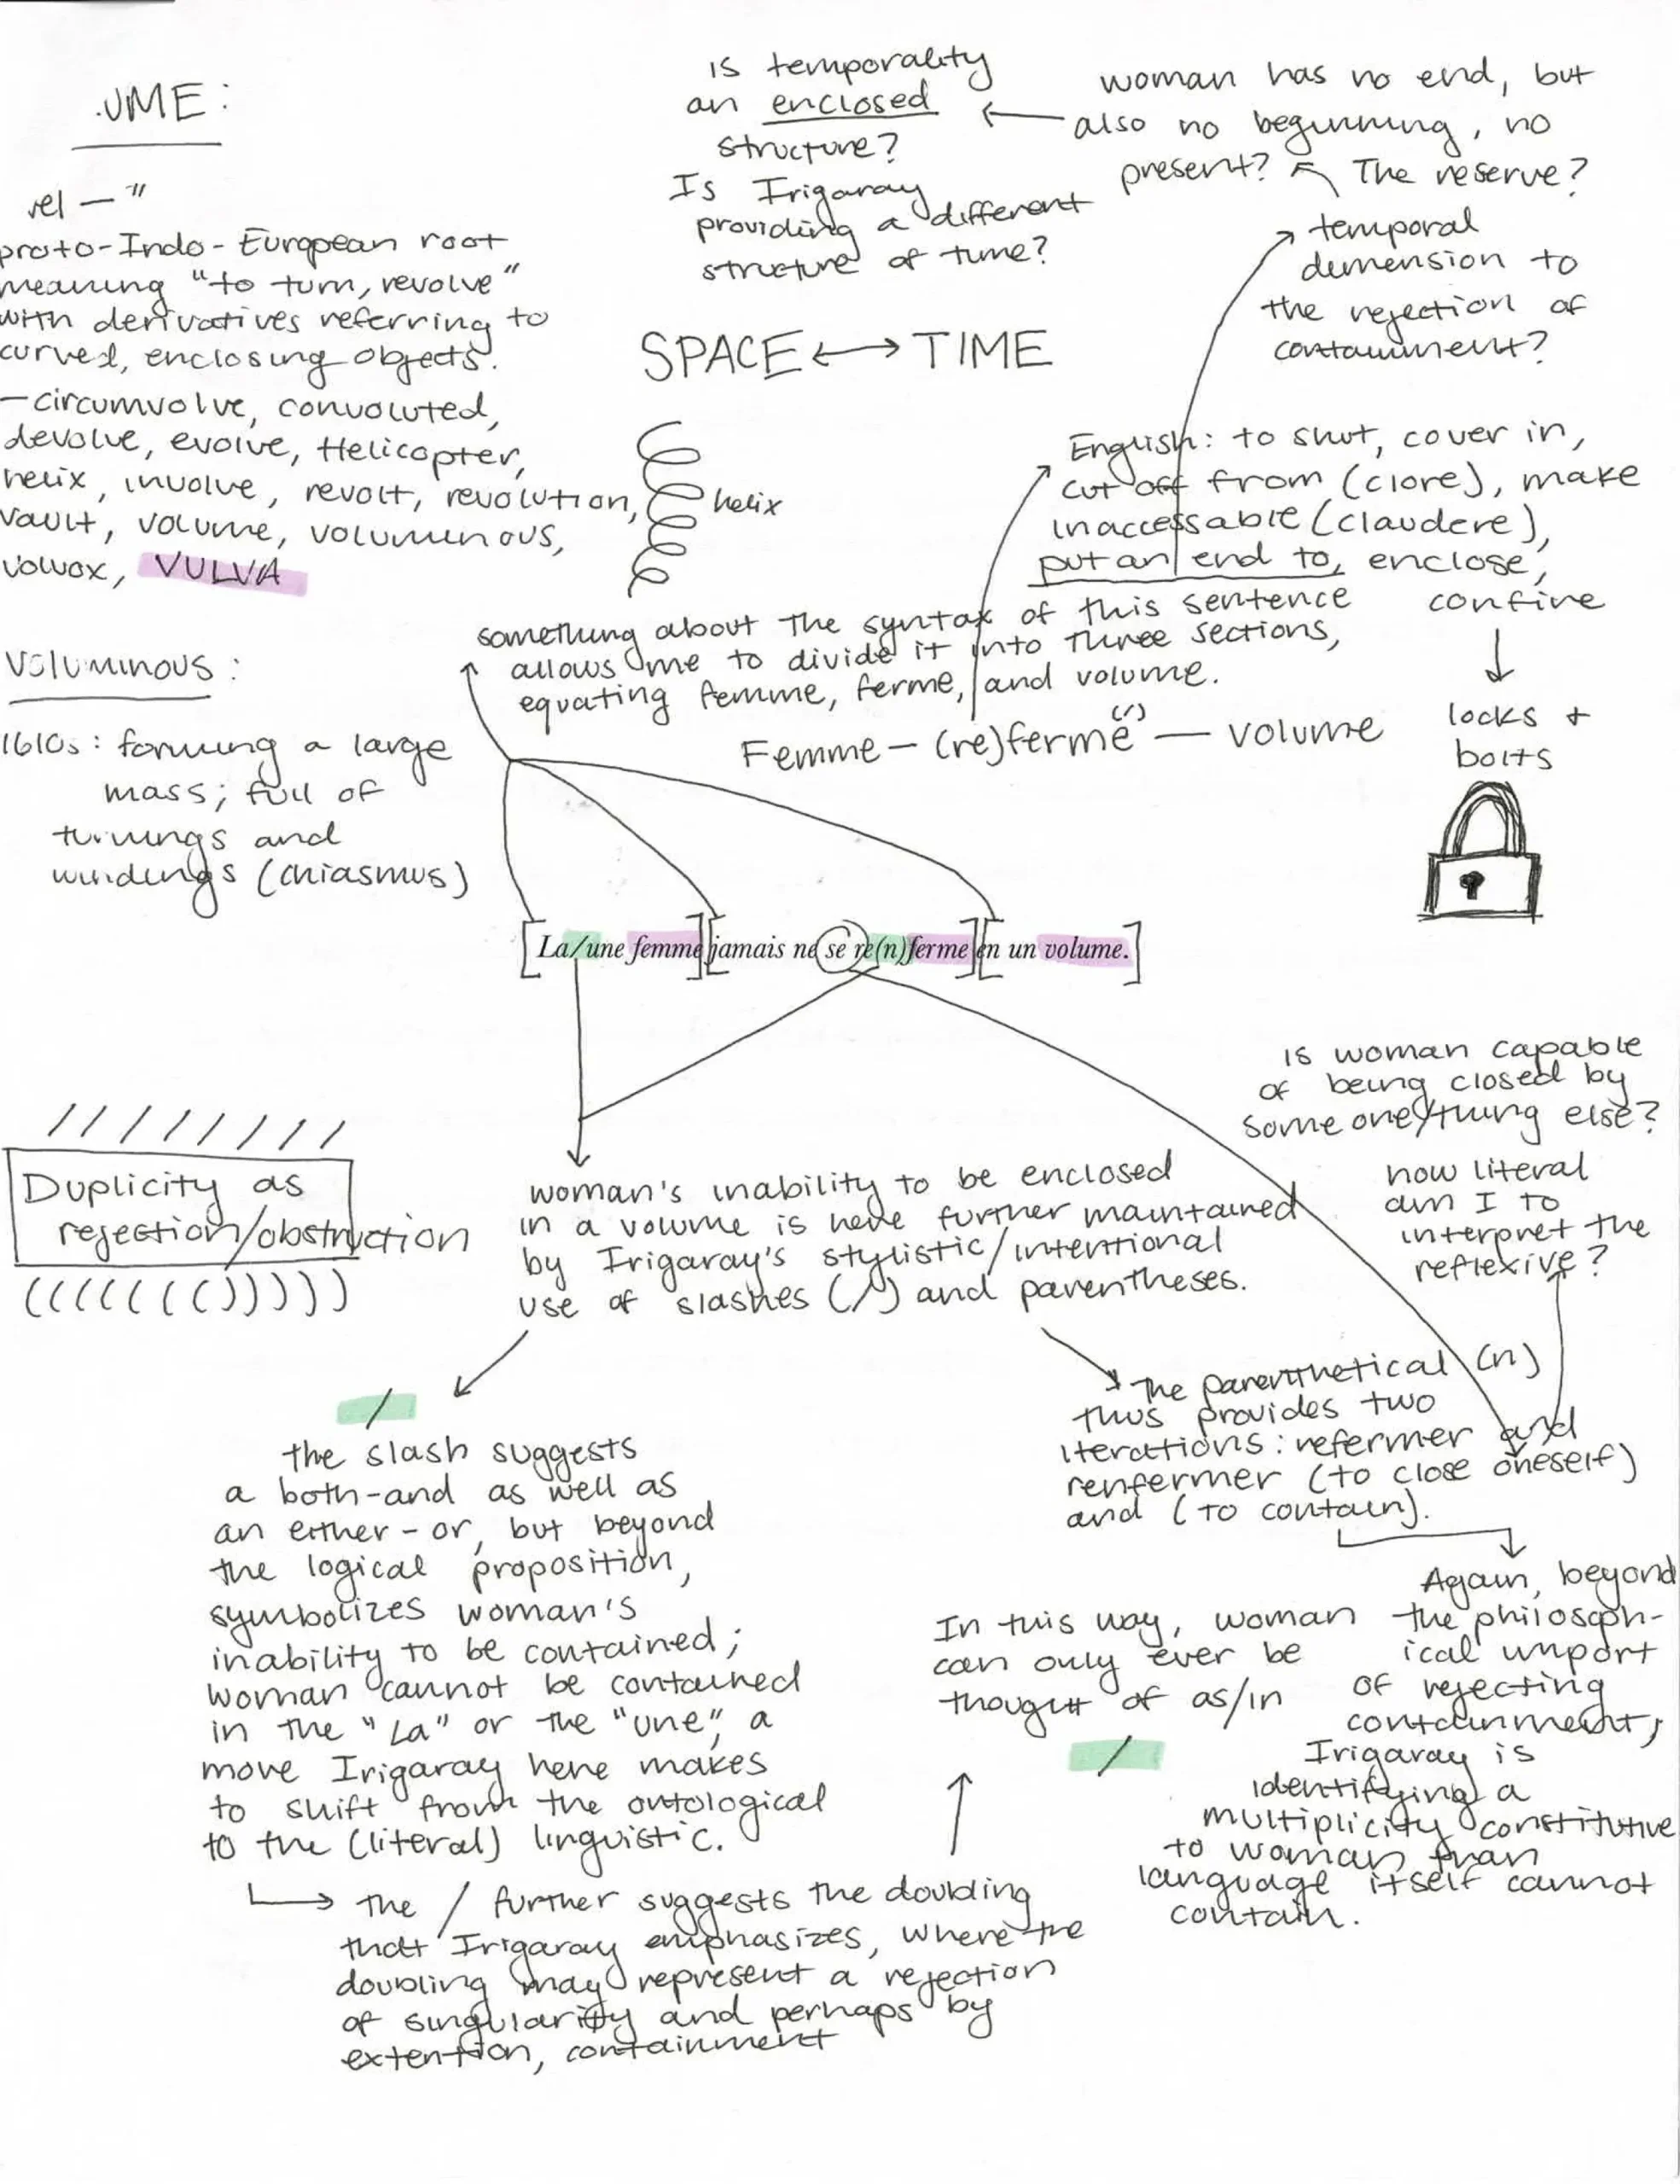 .UME:
vel — "
proto-Indo-European root
meaning "to turn, revolve"
with derivatives referring to
curved, enclosing objects.
—circumvolve, convoluted,
devolve, evolve, Helicopter,
helix, involve, revolt, revolution,
vault, volume, voluminous,
volvox, VULVA
VOLUMINOUS:
1610s: forming a large
mass; full of
turnings and
windings (chiasmus)
is temporality
an enclosed
structure?
Is Irigaray
providing a different
structure of time?
woman has no end, but
also no beginning, no
present? The reserve?
temporal
dimension to
the rejection of
containment?
SPACE ⟷ TIME
helix
English: to shut, cover in,
cut off from (clore), make
inaccessable (claudere),
put an end to, enclose,
confine
locks +
bolts
something about the syntax of this sentence
allows me to divide it into three sections,
equating femme, ferme, and volume.
Femme — (re)fermé — volume
[La/une femme][jamais ne se re(n)ferme][en un volume.]
/ / / / / / / /
Duplicity as
rejection/obstruction
((((((())))))
woman's inability to be enclosed
in a volume is here further maintained
by Irigaray's stylistic/intentional
use of slashes (/) and parentheses.
is woman capable
of being closed by
some one/thing else?
how literal
am I to
interpret the
reflexive?
/
the slash suggests
a both-and as well as
an either-or, but beyond
the logical proposition,
symbolizes woman's
inability to be contained;
woman cannot be contained
in the "La" or the "une", a
move Irigaray here makes
to shift from the ontological
to the (literal) linguistic.
the / further suggests the doubling
that Irigaray emphasizes, where the
doubling may represent a rejection
of singularity and perhaps by
extention, containment
The parenthetical (n)
thus provides two
iterations: refermer and
renfermer (to close oneself)
and (to contain).
In this way, woman
can only ever be
thought of as/in
/
Again, beyond
the philosoph-
ical import
of rejecting
containment,
Irigaray is
identifying a
multiplicity constitutive
to woman than
language itself cannot
contain.